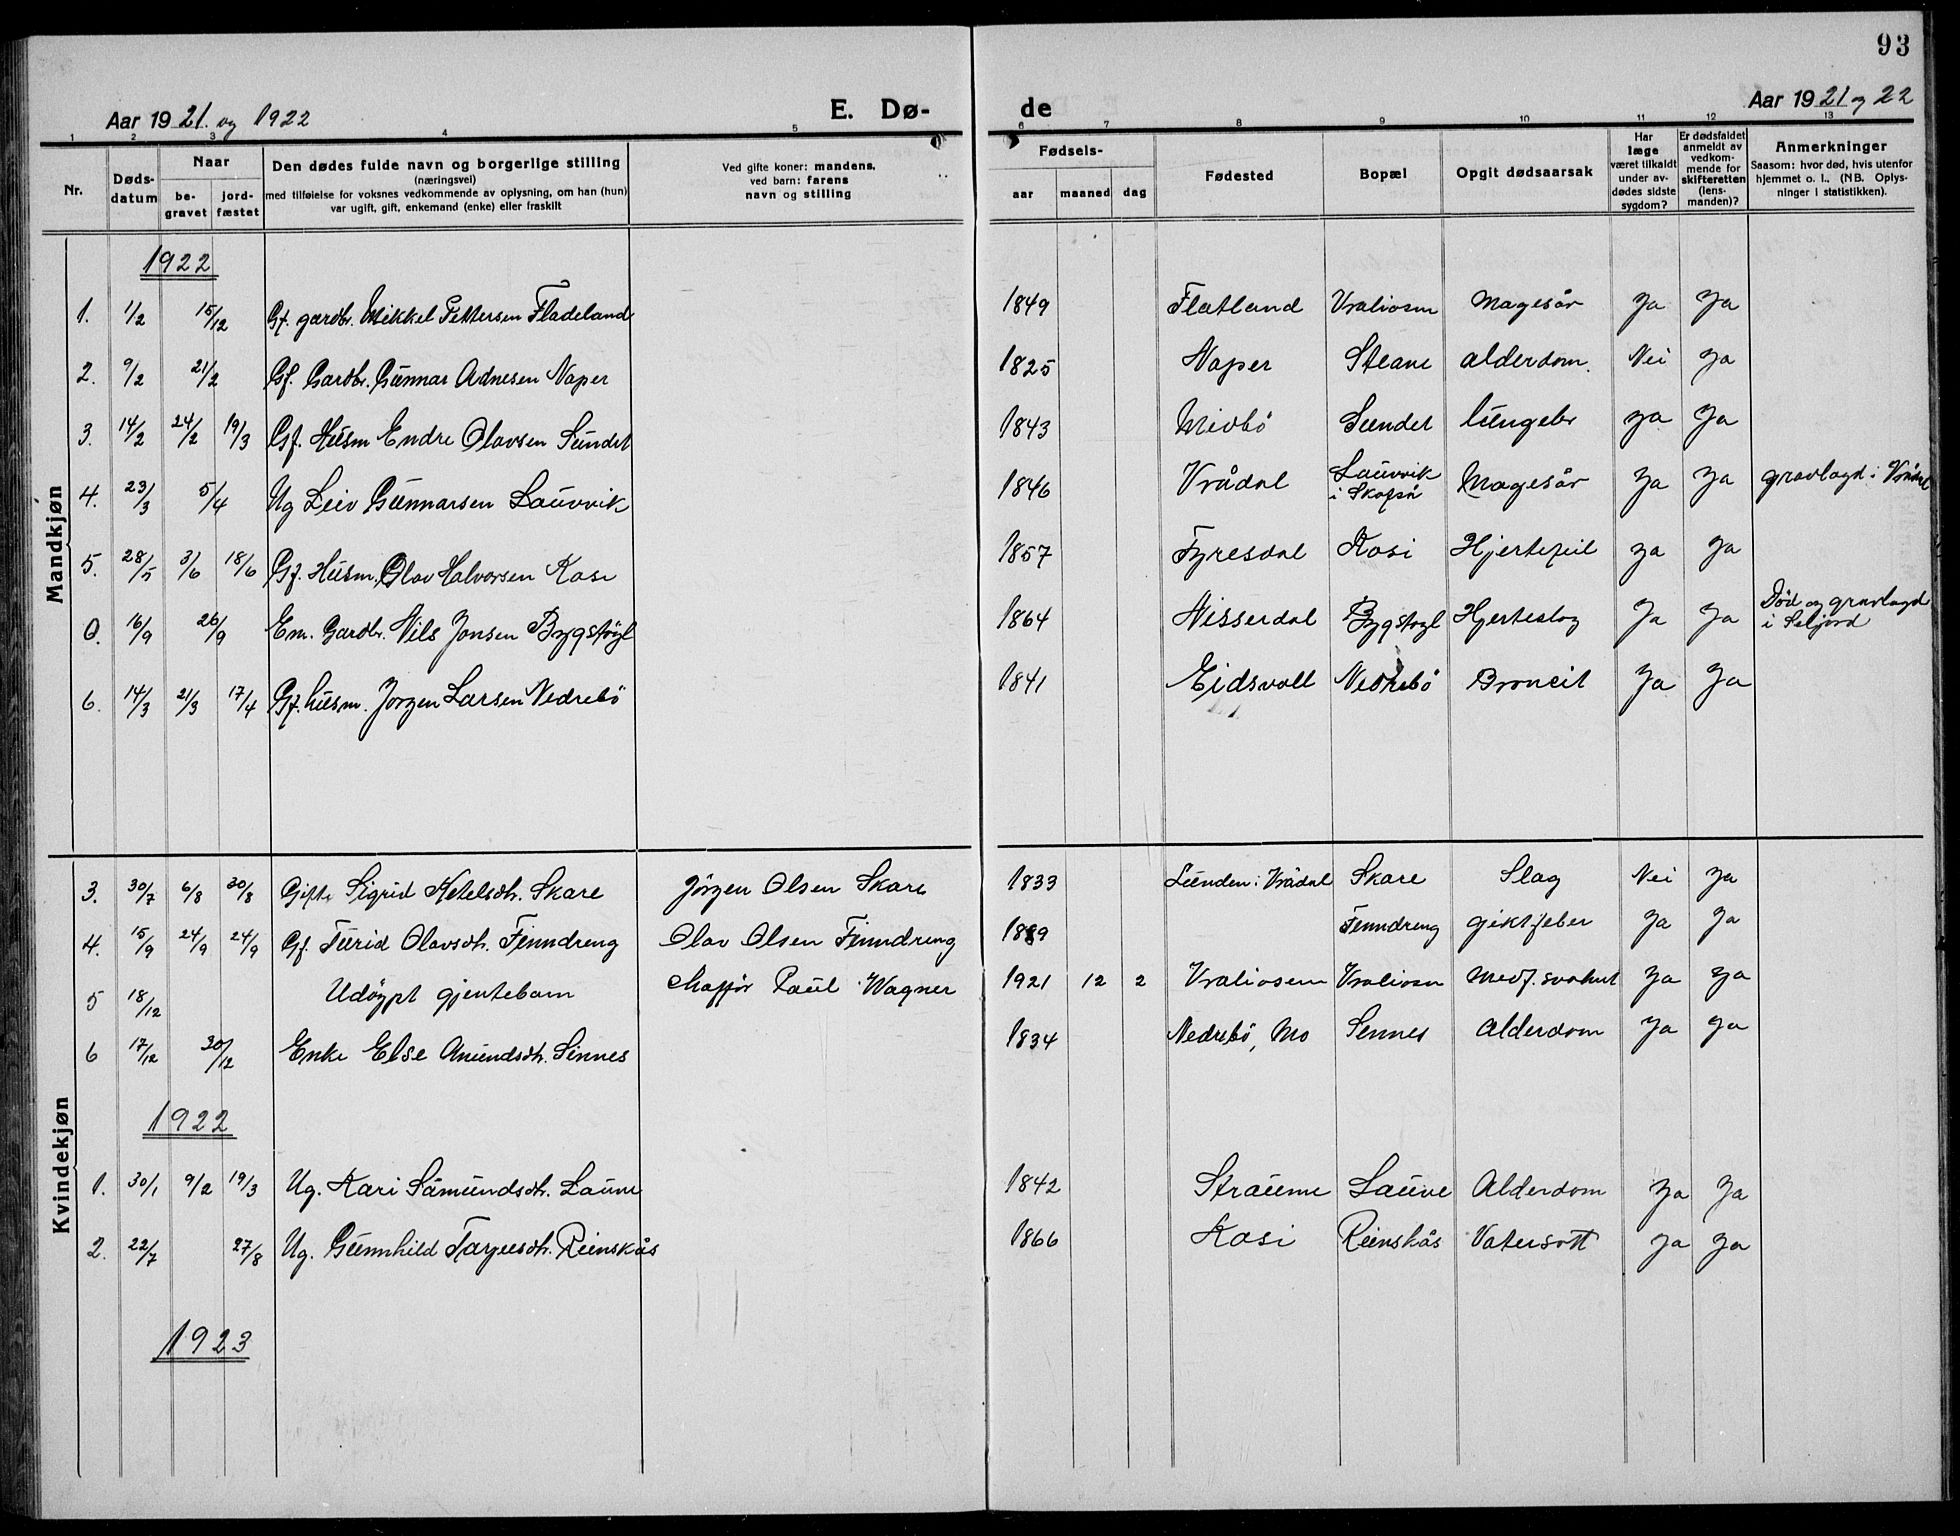 93
Aar 1921 og 1922
E. Dø-
de
Aar 1921 og 22
1 2 3 4 5 6 7 8 9 10 11 12 13
Nr.
Døds-datum
Naar
be-gravet
jord-fæstet
Den dødes fulde navn og borgerlige stilling
(næringsvei)
med tilføielse for voksnes vedkommende av oplysning, om han (hun)
var ugift, gift, enkemand (enke) eller fraskilt
Ved gifte koner: mandens,
ved barn: farens
navn og stilling
Fødsels-
aar maaned dag
Fødested
Bopæl
Opgit dødsaarsak
Har læge været tilkaldt under av-dødes sidste sygdom?
Er dødsfaldet anmeldt av vedkom-mende for skifteretten (lens-manden)?
Anmerkninger
Saasom: hvor død, hvis utenfor hjemmet o. l., (NB. Oplys-ninger i statistikken).
Mandkjøn
1922
1. 1/2 15/12 Gf. gardbr. Mikkel Pettersen Fladeland 1849 Flatland Vraliosen Magesår Ja Ja
2. 9/2 21/2 Gf. Gardbr. Gunnar Adnesen Naper 1825 Naper Steane alderdom. Nei Ja
3. 14/2 24/2 19/3 Gf. Husm Endre Olavsen Sundet 1843 Midbö Sundet lungebr Ja Ja
4. 23/3 5/4 Ug Leiv Gunnarsen Lauvvik 1846 Vrådal Lauvvik i Skafså Magesår Ja Ja gravlagd i Vrådal
5. 28/5 3/6 18/6 Gf. Husm. Olav Halvorsen Kasi 1857 Fyresdal Kasi Hjertefeil Ja Ja
0. 16/9 26/9 Em. Gardbr. Nils Jonsen Bygstöyl 1864 Nisserdal Bygstöyl Hjerteslag Ja Ja Död og gravlagd i Seljord
6. 14/3 21/3 17/4 Gf. husm. Jorgen Larsen Nedrebö 1841 Eidsvoll Nedrebö Broncit Ja Ja
Kvindekjøn
3. 30/7 6/8 30/8 Gift Sigrid Ketelsdtr. Skare Jörgen Olsen Skare 1833 Lunden i Vrådal Skare Slag Nei Ja
4. 15/9 24/9 24/9 Gf. Turid Olavsdtr. Finndreng Olav Olsen Finndreng 1889 Finndreng giktfeber Ja Ja
5 18/12 Udöypt gjentebarn Paul Wagner 1921 12 2 Vraliosen Vraliosn Medf. svakhet Ja Ja
6 17/12 30/12 Enke Else Anundsdtr. Sinnes 1834 Nedrebö, Mo Sinnes Alderdom Ja Ja
1922
1. 30/1 9/2 19/3 Ug. Kari Såmundsdtr. Lauve 1842 Straume Lauve Alderdom Ja Ja
2. 22/7 27/8 Ug. Gunnhild Tarjeisdtr. Reinskås 1866 Kasi Reinskås Vatersott Ja Ja
1923